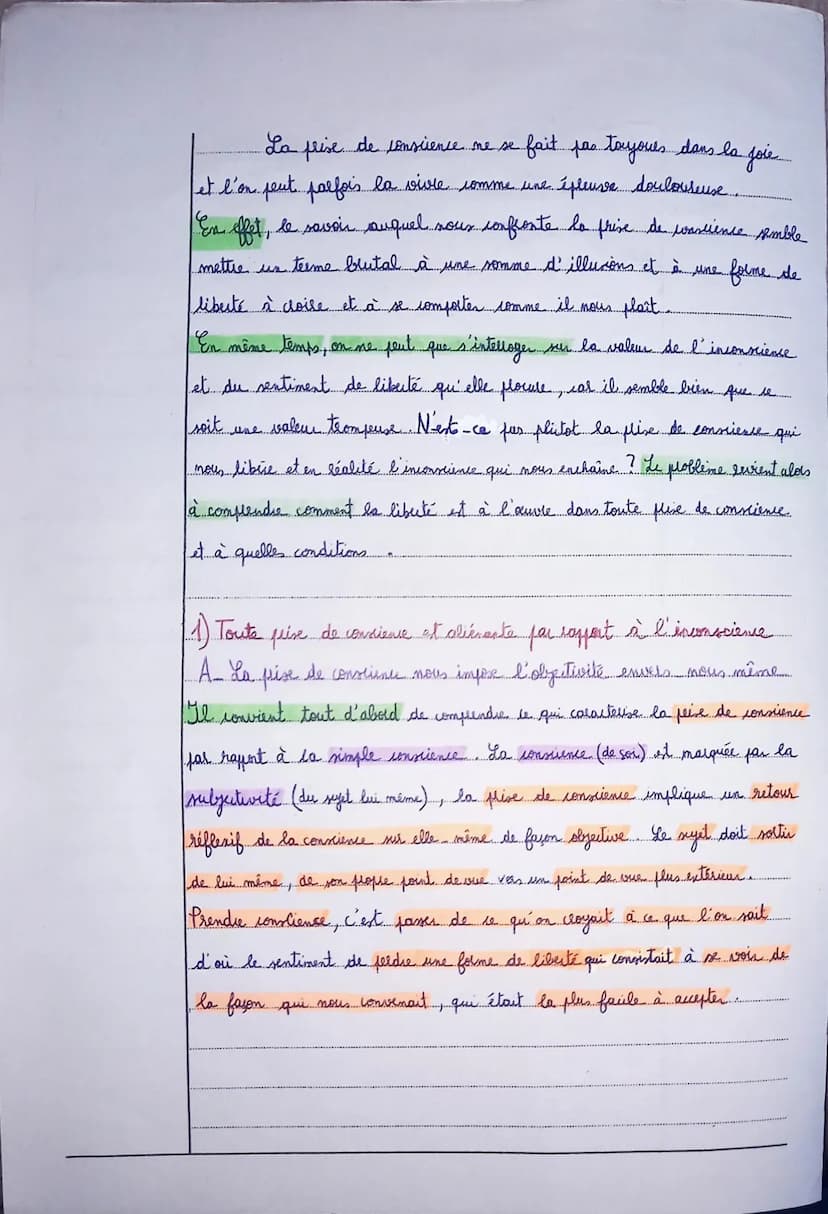 La prise de conscience ne se fait pas toujours dans la joie
et l'on peut parfois la vivre comme une épreuve douloureuse.
En effet, le savoir auquel nous confronte la prise de conscience semble
mettre un terme brutal à une somme d'illusions et à une forme de
liberté à croire et à se comporter comme il nous plaît.
En même temps, on ne peut que s'interroger sur la valeur de l'inconscience
et du sentiment de liberté qu'elle procure, car il semble bien que ce
soit une valeur trompeuse. N'est-ce pas plutôt la prise de conscience qui
nous libère et en réalité l'inconscience qui nous enchaîne ? Le problème revient alors
à comprendre comment la liberté est à l'œuvre dans toute prise de conscience
et à quelles conditions.
1) Toute prise de conscience est aliénante par rapport à l'inconscience
A- La prise de conscience nous impose l'objectivité envers nous même
Il convient tout d'abord de comprendre ce qui caractérise la prise de conscience
par rapport à la simple conscience. La conscience (de soi) est marquée par la
subjectivité (du sujet lui même), la prise de conscience implique un retour
réflexif de la conscience sur elle-même de façon objective. Le sujet doit sortir
de lui même, de son propre point de vue vers un point de vue plus extérieur.
Prendre conscience, c'est passer de ce qu'on croyait à ce que l'on sait
d'où le sentiment de perdre une forme de liberté qui consistait à se voir de
la façon qui nous convenait, qui était la plus facile à accepter.